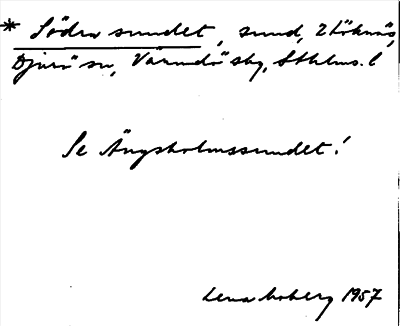 * Södra sundet, sund,
Djurö sn, Värmdö skg, Sthlms. l
Se Ängsholmssundet!
Lena Moberg 1957